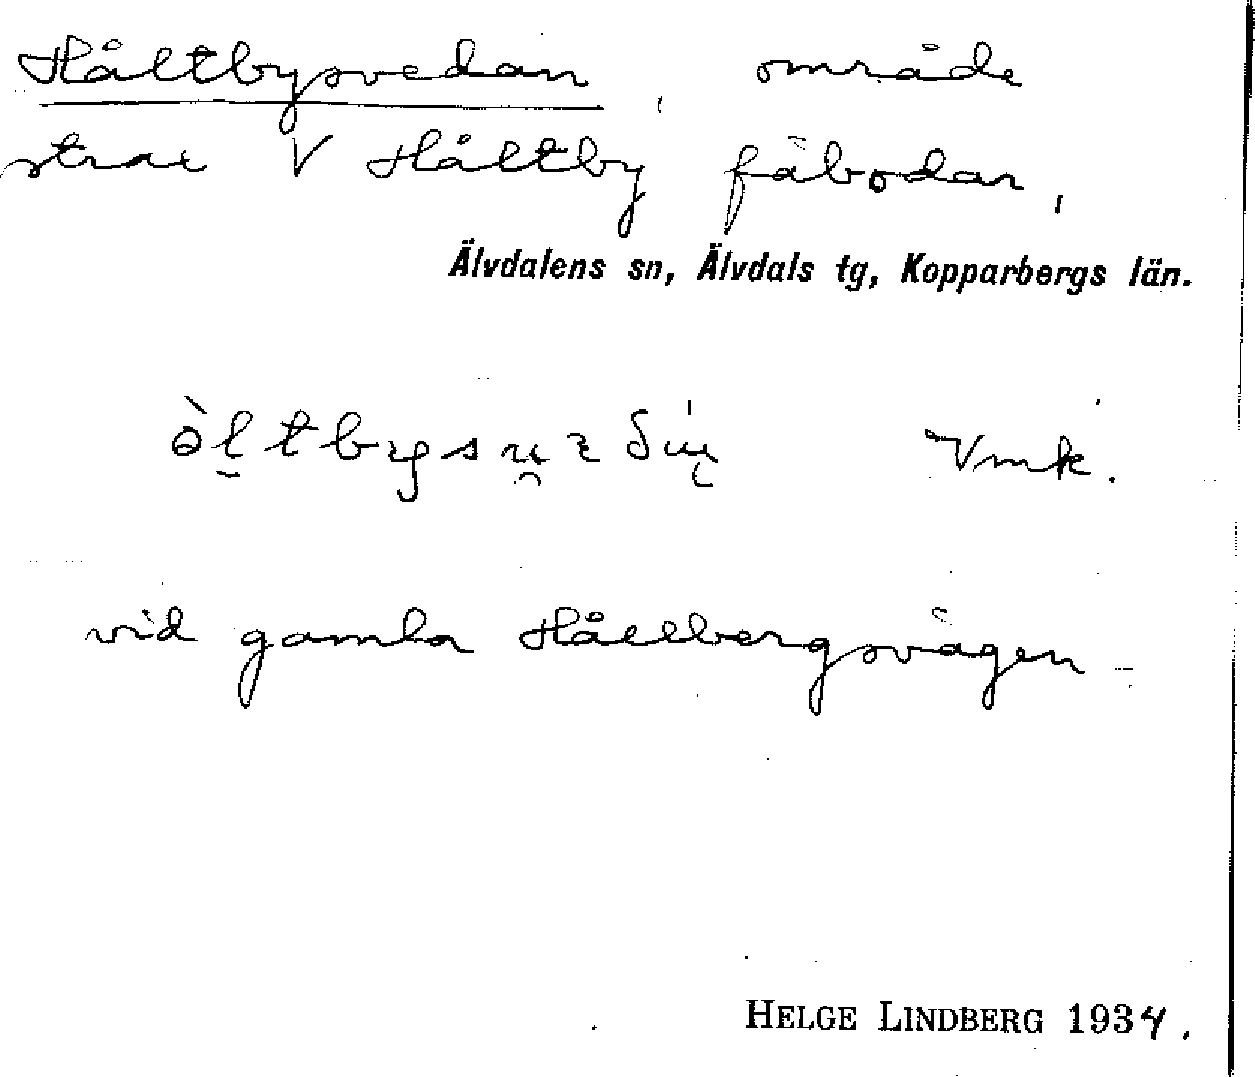 Håltbysvedan, område
strax V Håltby fäbodar,
Älvdalens sn, Älvdals tg, Kopparbergs län.
Vmk.
vid gamla Hållbergsvägen
HELGE LINDBERG 1934.